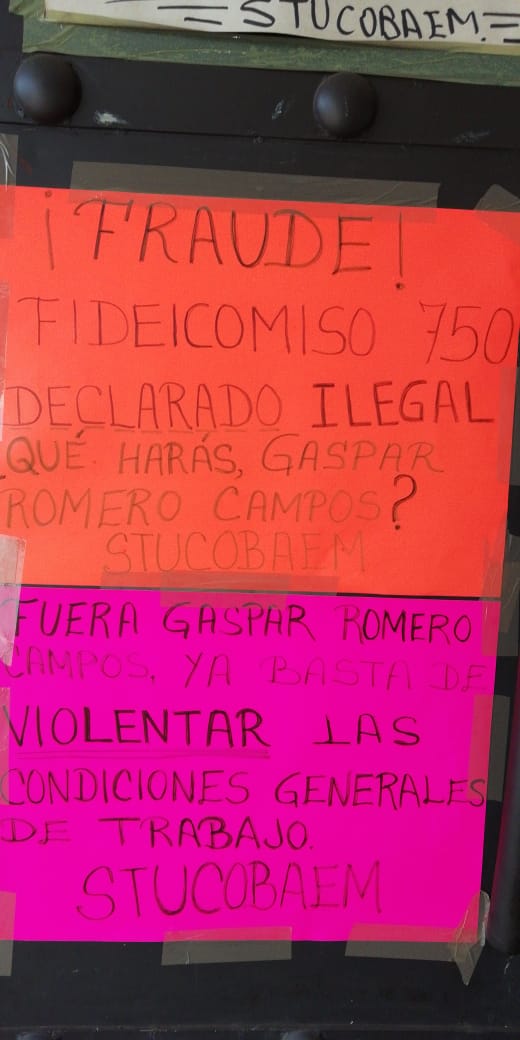 =STUCOBAEM.=
¡FRAUDE!
FIDEICOMISO 750
DECLARADO ILEGAL
QUÉ HARÁS, GASPAR
ROMERO CAMPOS?
STUCOBAEM
FUERA GASPAR ROMERO
CAMPOS, YA BASTA DE
VIOLENTAR LAS
CONDICIONES GENERALES
DE TRABAJO.
STUCOBAEM